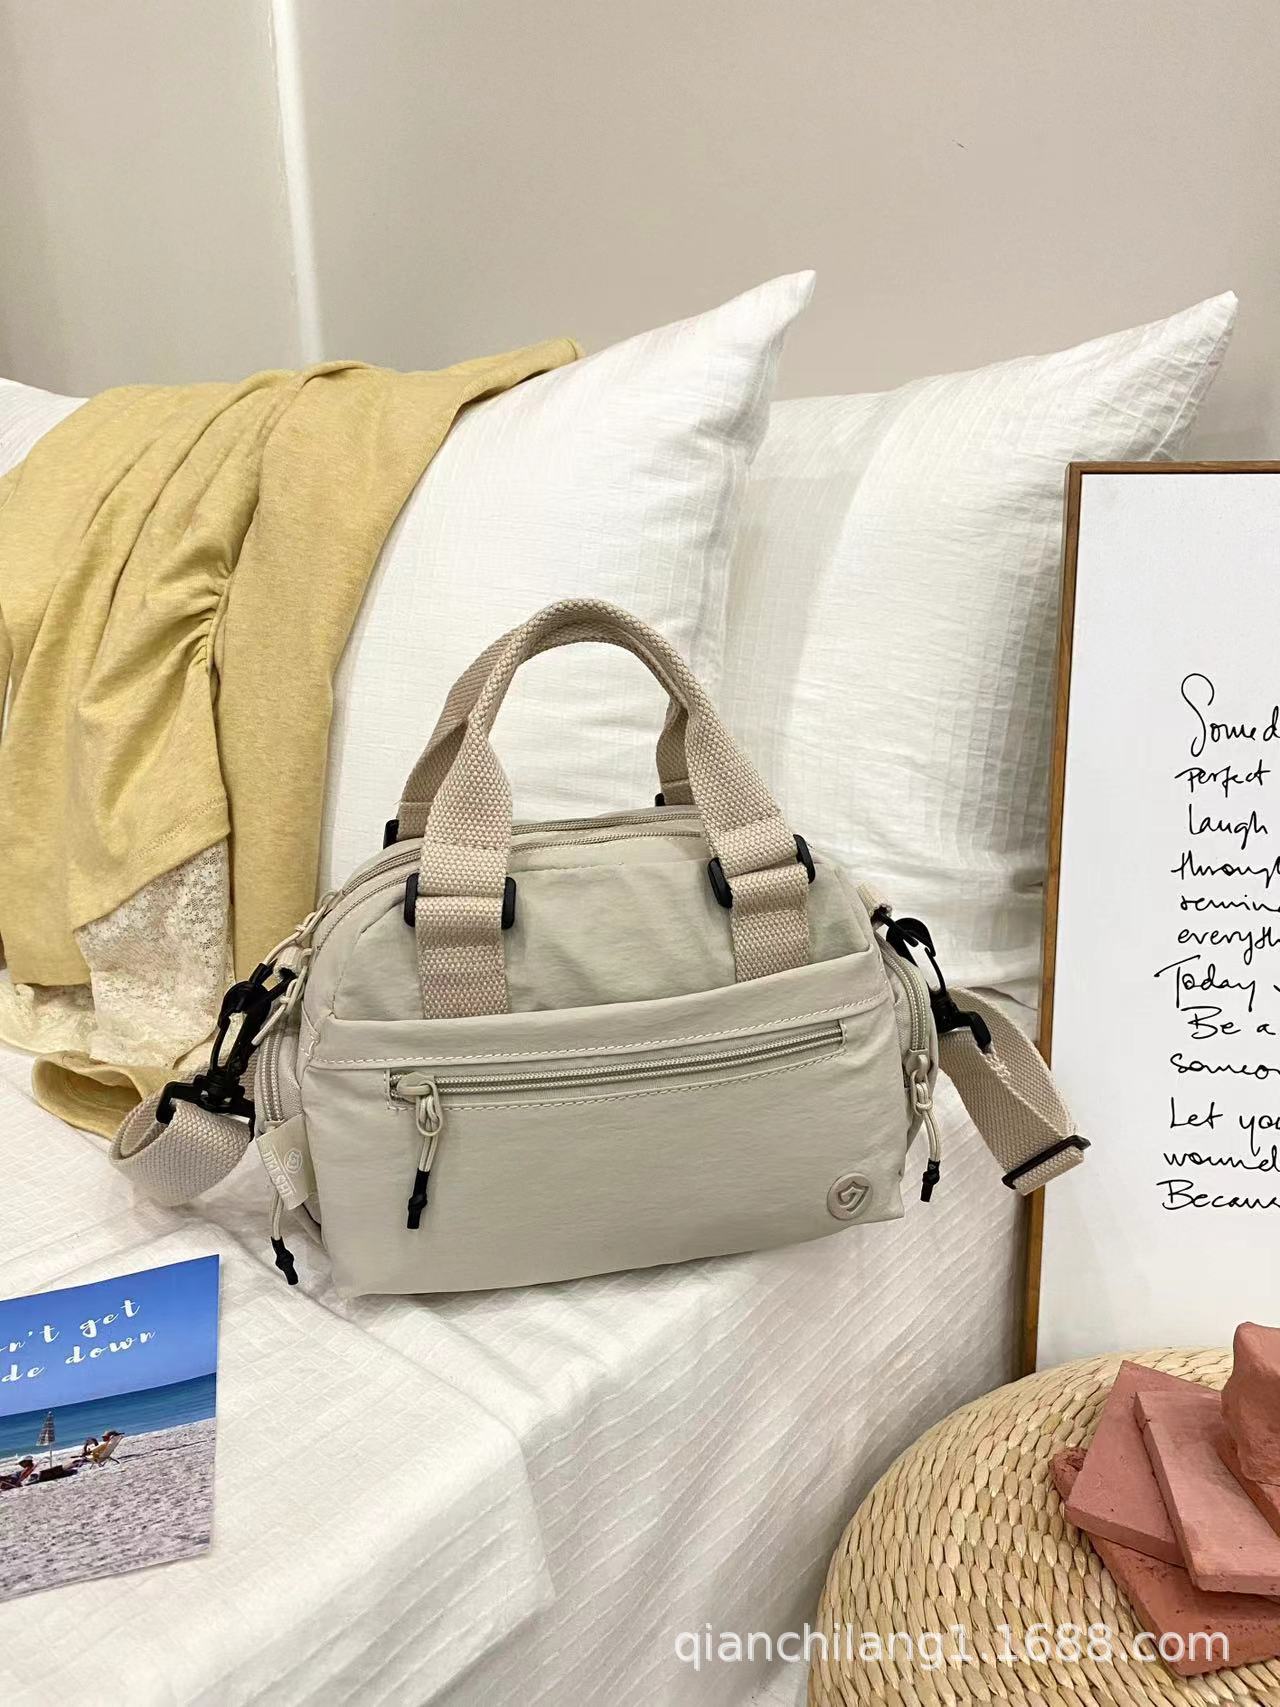 Somed
perfect
laugh
through
remind
everyth
Today
Be a
someo
Let you
wound
Because
n't get
de down
qianchilang1.1688.com